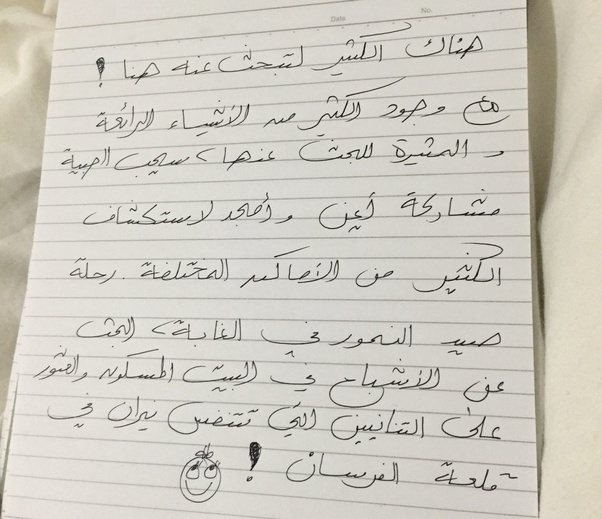 Date
No.
هناك الكثير لتبحث عنه هنا !
مع وجود الكثير من الأشياء الرائعة
والمثيرة للبحث عنها، سيحب الصبية
مشاركة أيمن وأمجد لاستكشاف
الكثير من الأماكن المختلفة. رحلة
صيد النمور في الغابة، البحث
عن الأشباح في البيت المسكون والعثور
على التنانين التي تتنفس نيران في
قلعة الفرسان !